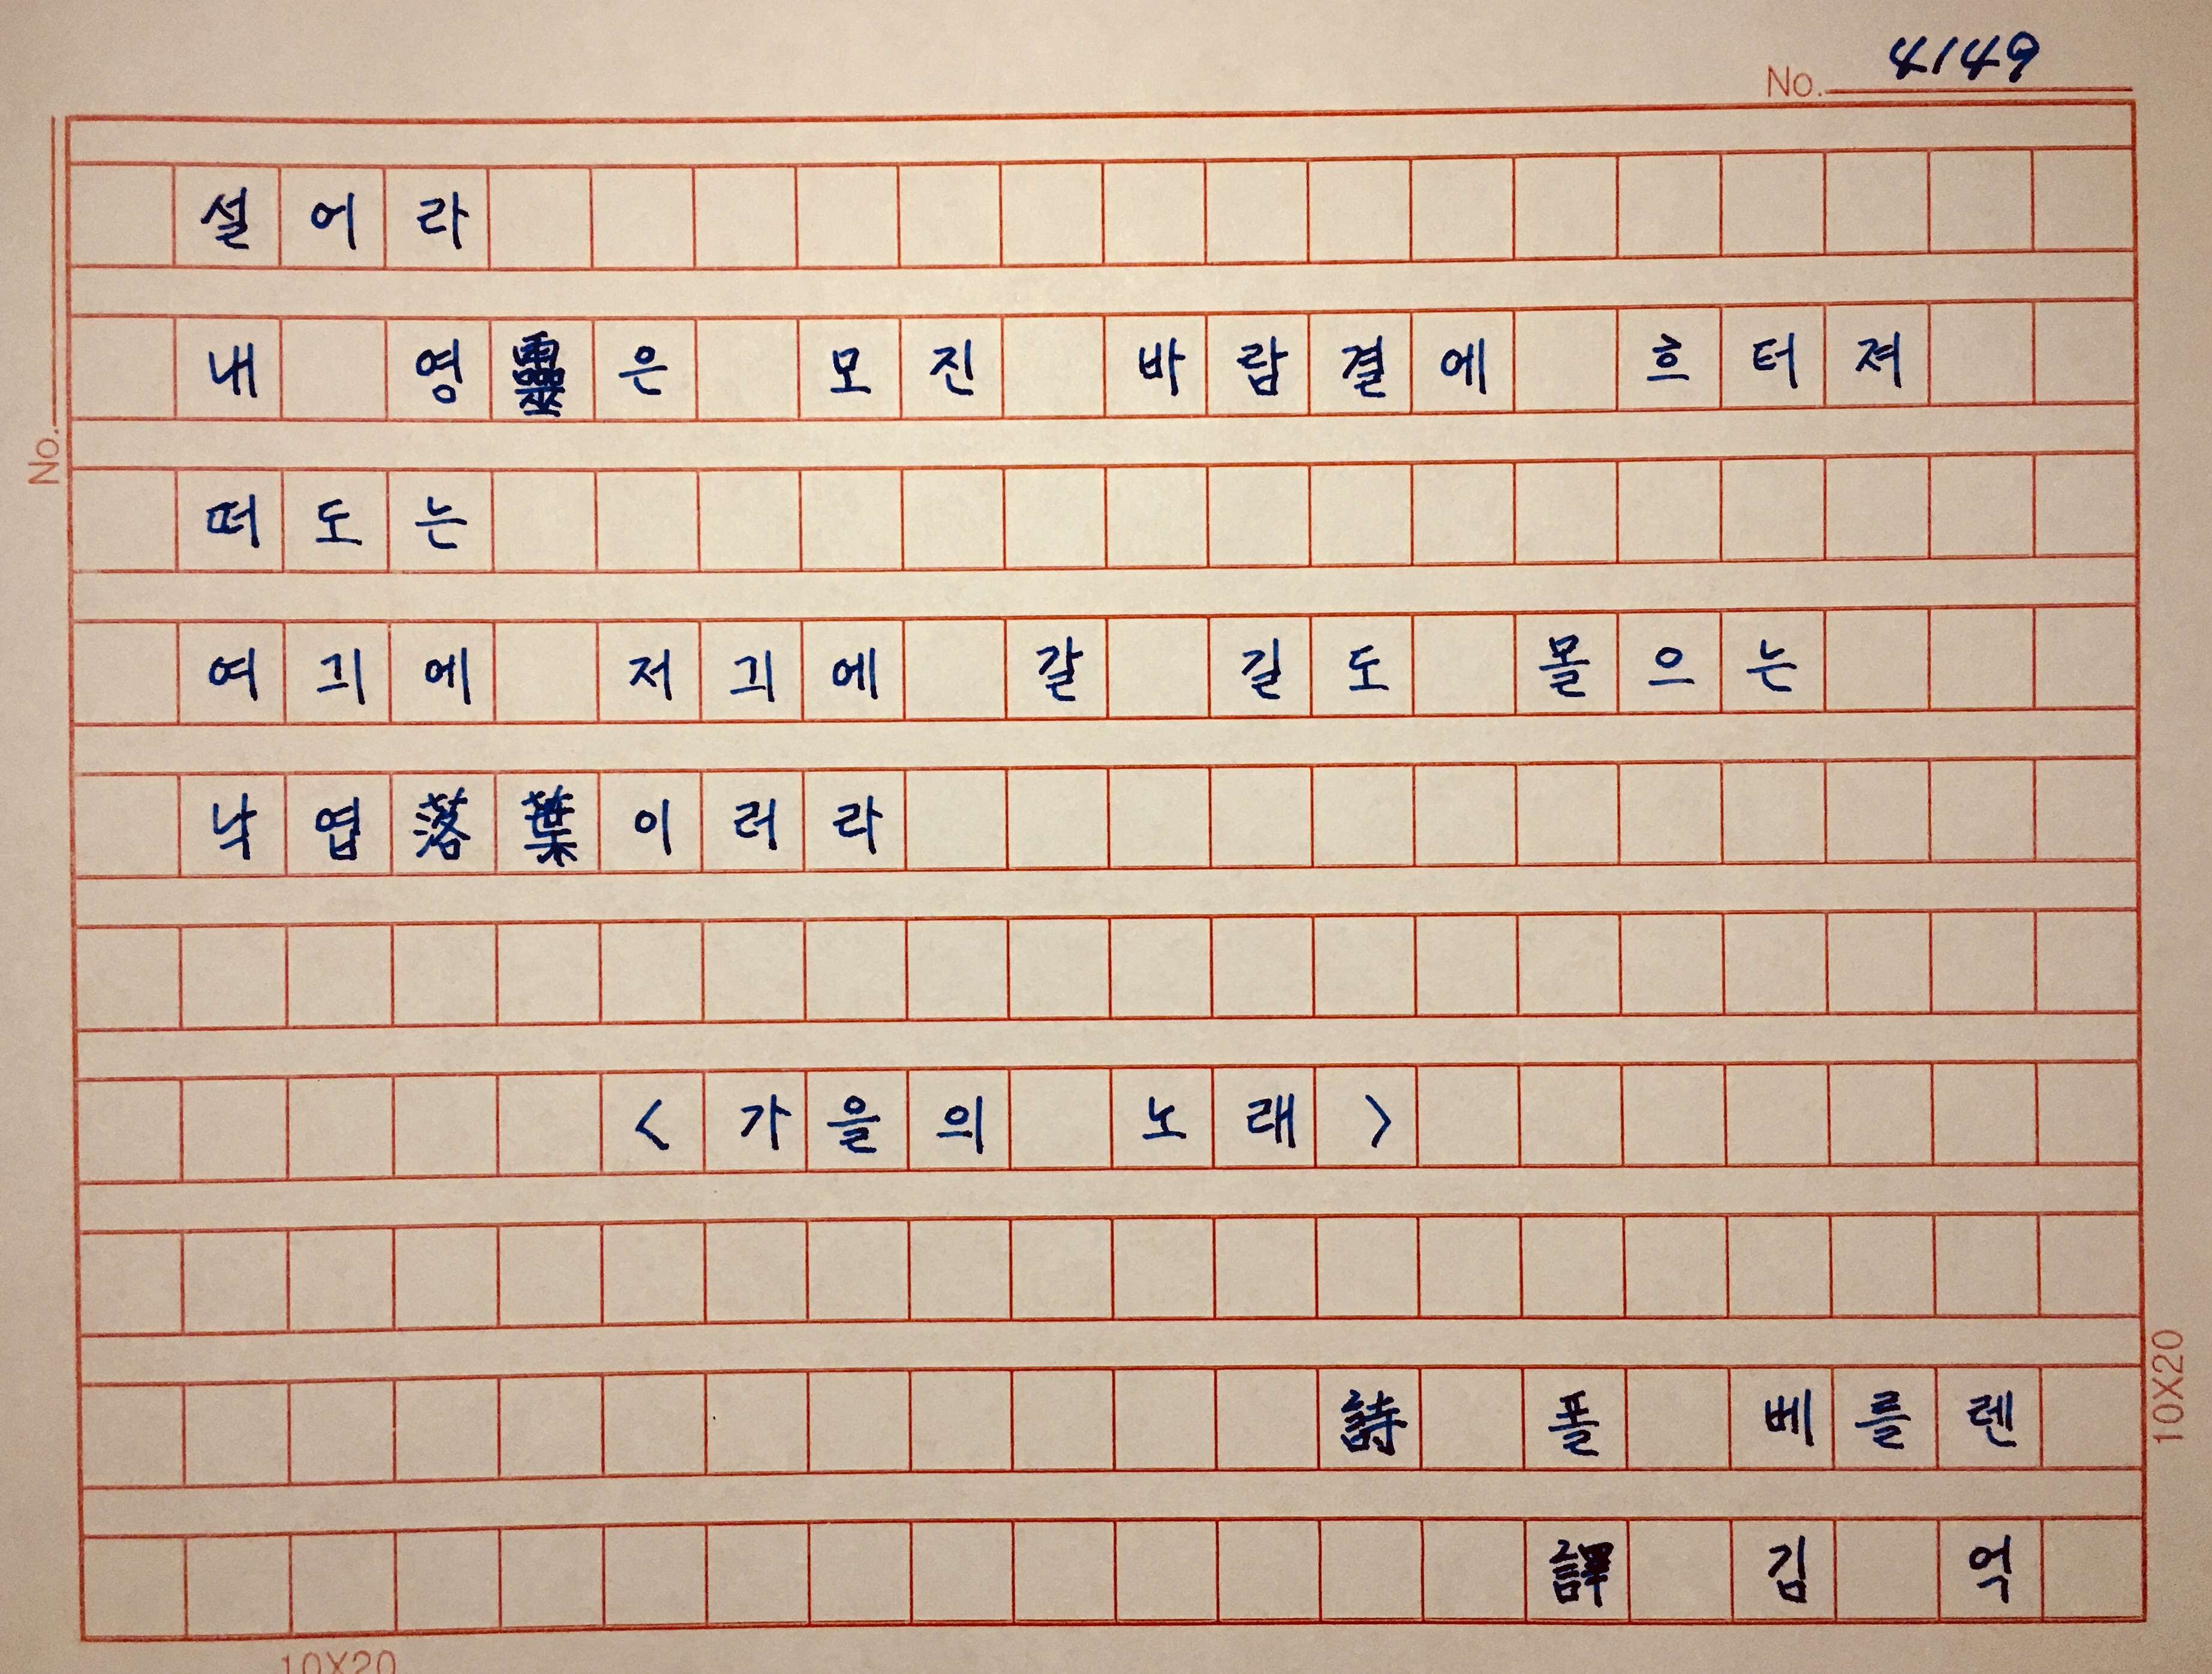 No. 4149
설어라
내 영靈은 모진 바람결에 흐터져
떠도는
여긔에 저긔에 갈 길도 몰으는
낙엽落葉이러라
<가을의 노래>
詩 폴 베를렌
譯 김 억
No.
10X20
10X20